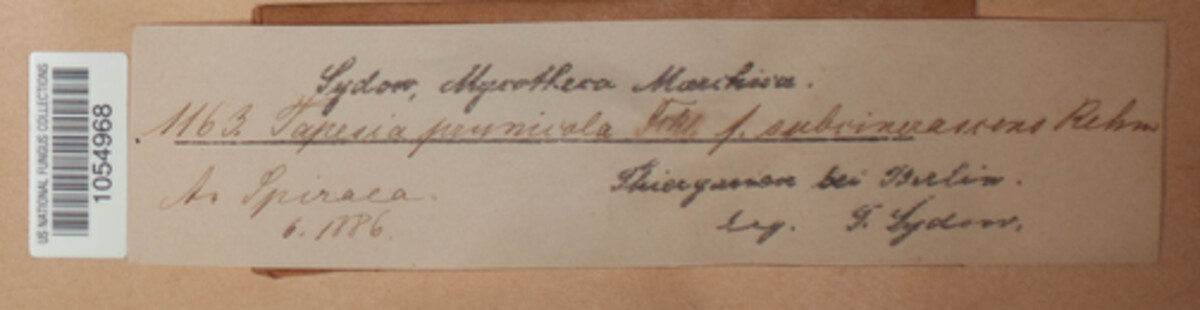 US NATIONAL FUNGUS COLLECTIONS
1054968
Sydow, Mycotheca Marchica.
1163. Tapesia prunicola Fckl. f. subcinerascens Rehm
An Spiraea.
6. 1886.
Thiergarten bei Berlin.
leg. P. Sydow.